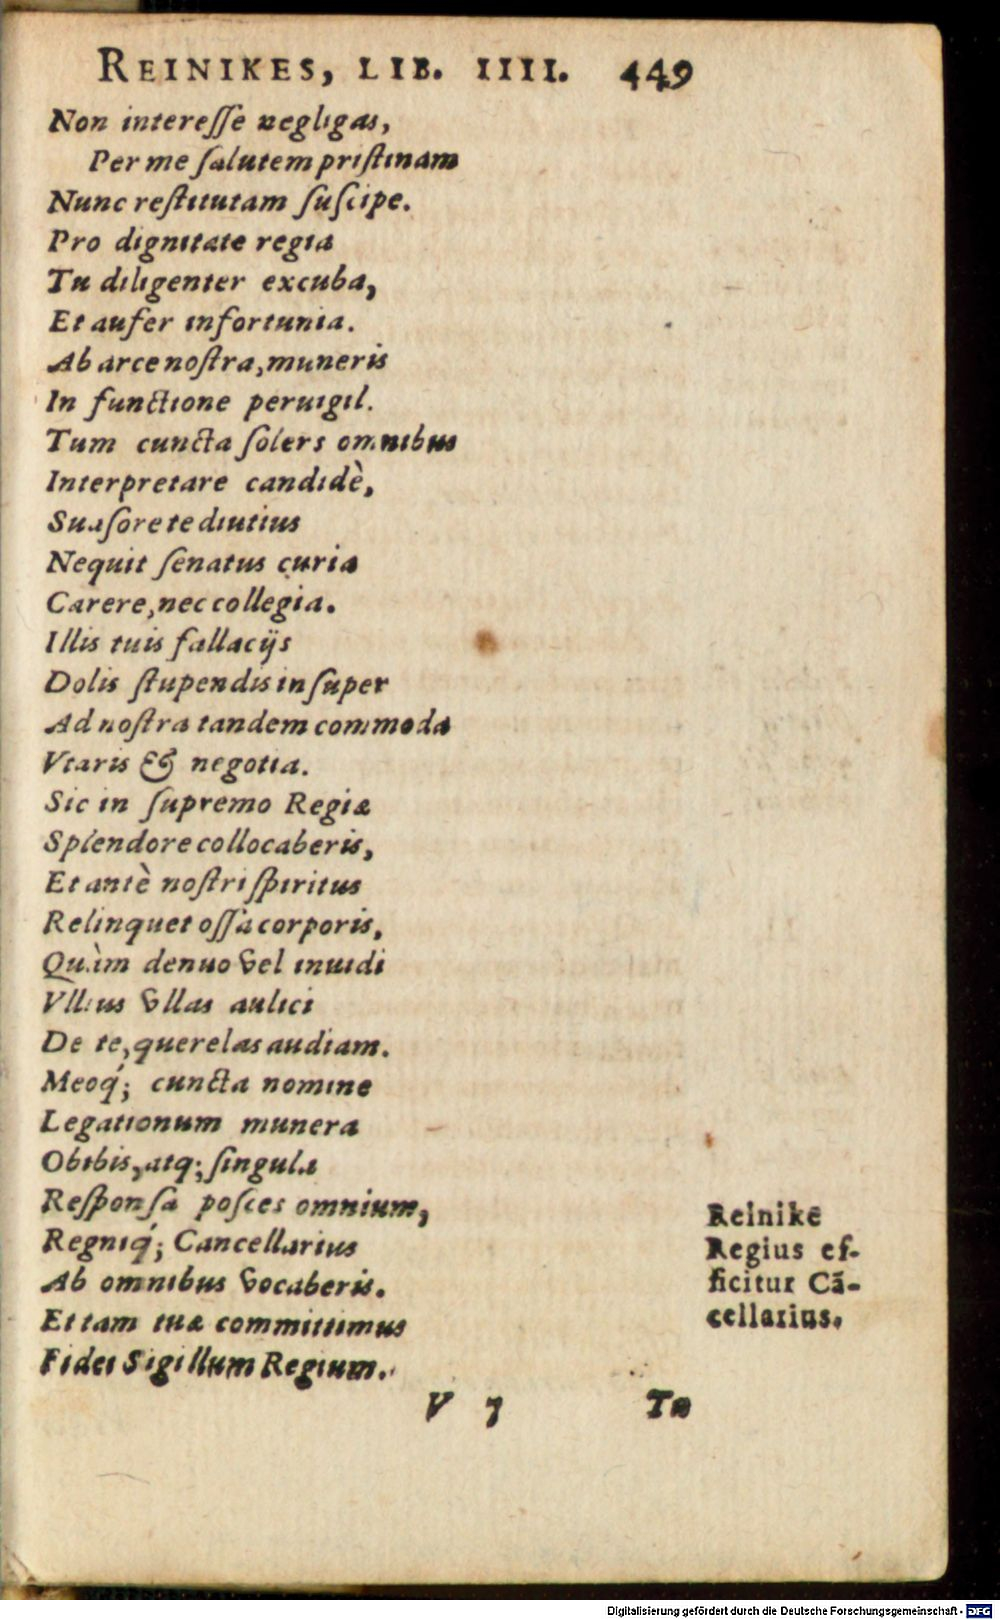 REINIKES, LIB. IIII. 449
Non interesse negligas,
Per me salutem pristinam
Nunc restitutam suscipe.
Pro dignitate regia
Tu diligenter excuba,
Et aufer infortunia.
Ab arce nostra, muneris
In functione peruigil.
Tum cuncta solers omnibus
Interpretare candidè,
Suasore te diutius
Nequit senatus curia
Carere, nec collegia.
Illis tuis fallacijs
Dolis stupendis insuper
Ad nostra tandem commoda
Vtaris & negotia.
Sic in supremo Regiæ
Splendore collocaberis,
Et antè nostri spiritus
Relinquet ossa corporis,
Quàm denuo vel inuidi
Vllius vllas aulici
De te, querelas audiam.
Meoq́; cuncta nomine
Legationum munera
Obibis, atq; singula
Responsa posces omnium,
Regniq́; Cancellarius
Ab omnibus vocaberis.
Et tam tuæ committimus
Fidei Sigillum Regium.
Reinikē
Regius ef-
ficitur Cā-
cellarius.
V 7 Te
Digitalisierung gefördert durch die Deutsche Forschungsgemeinschaft - DFG